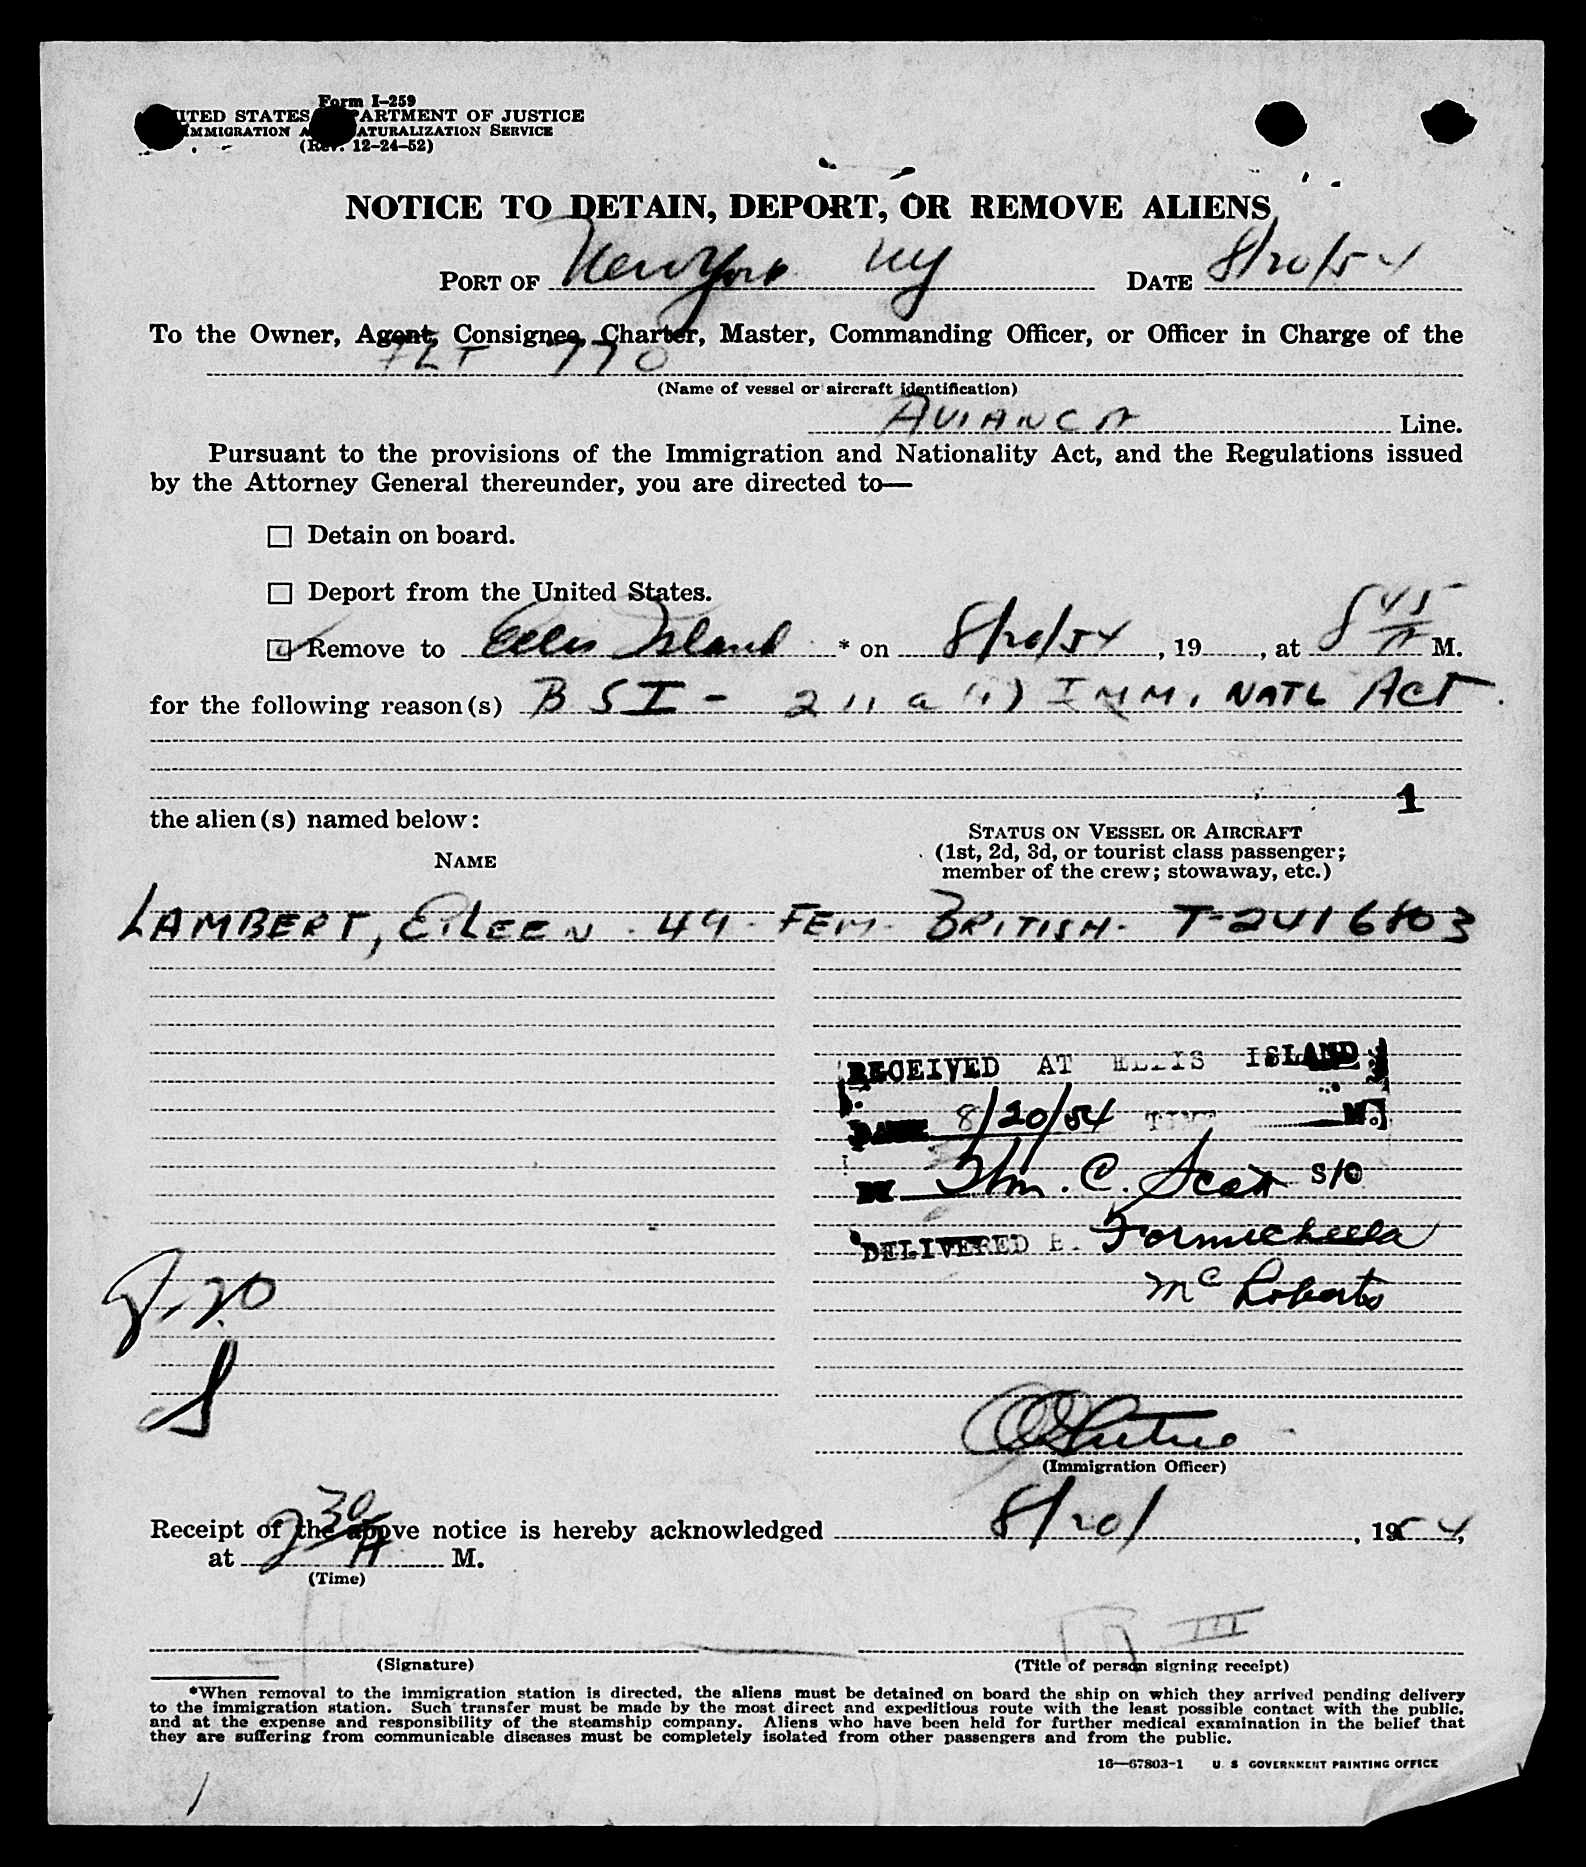 Form I-259
UNITED STATES DEPARTMENT OF JUSTICE
IMMIGRATION AND NATURALIZATION SERVICE
(Rev. 12-24-52)
NOTICE TO DETAIN, DEPORT, OR REMOVE ALIENS
PORT OF New York NY DATE 8/20/54
To the Owner, Agent, Consignee, Charter, Master, Commanding Officer, or Officer in Charge of the
FLT 770
(Name of vessel or aircraft identification)
AVIANCA Line.
Pursuant to the provisions of the Immigration and Nationality Act, and the Regulations issued
by the Attorney General thereunder, you are directed to—
Detain on board.
Deport from the United States.
Remove to Ellis Island * on 8/20/54, 19 , at 8 45 A M.
for the following reason(s) B S I - 211 a (1) IMM. NATL ACT
1
the alien(s) named below:
NAME
STATUS ON VESSEL OR AIRCRAFT
(1st, 2d, 3d, or tourist class passenger;
member of the crew; stowaway, etc.)
LAMBERT, EILEEN - 49 - FEM - BRITISH - T-2416803
RECEIVED AT ELLIS ISLAND
DATE 8/20/54 TIME M.
BY Wm. C. Scott S/O
DELIVERED B. Formichella
McRoberts
(Immigration Officer)
Receipt of the above notice is hereby acknowledged 8/20/, 1954,
at 30 A M.
(Time)
III
(Signature)
(Title of person signing receipt)
*When removal to the immigration station is directed, the aliens must be detained on board the ship on which they arrived pending delivery
to the immigration station. Such transfer must be made by the most direct and expeditious route with the least possible contact with the public.
and at the expense and responsibility of the steamship company. Aliens who have been held for further medical examination in the belief that
they are suffering from communicable diseases must be completely isolated from other passengers and from the public.
16—67803-1 U. S GOVERNMENT PRINTING OFFICE